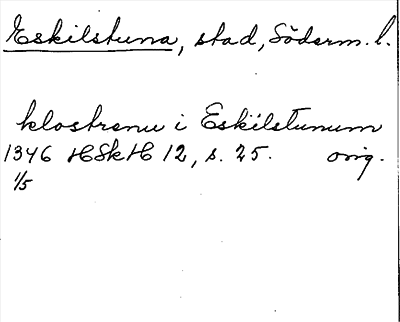 Eskilstuna, stad, Söderm. l.
klostrenu i Eskilstunum
1346 HSkH 12, s. 25. orig.
1/5